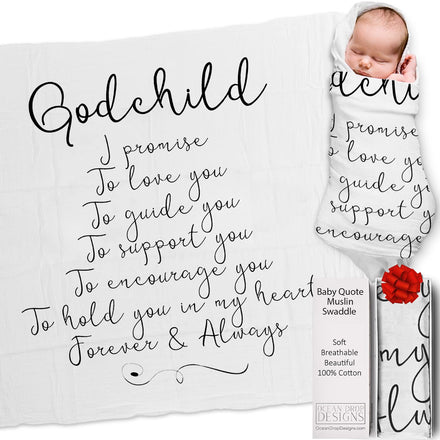 Godchild
I promise
To love you
To guide you
To support you
To encourage you
To hold you in my heart
Forever & Always
dchi
promise
o love you
guide you
support you
encourage
Baby Quote
Muslin
Swaddle
Soft
Breathable
Beautiful
100% Cotton
OCEAN DROP
DESIGNS
OceanDropDesigns.com
my
lw